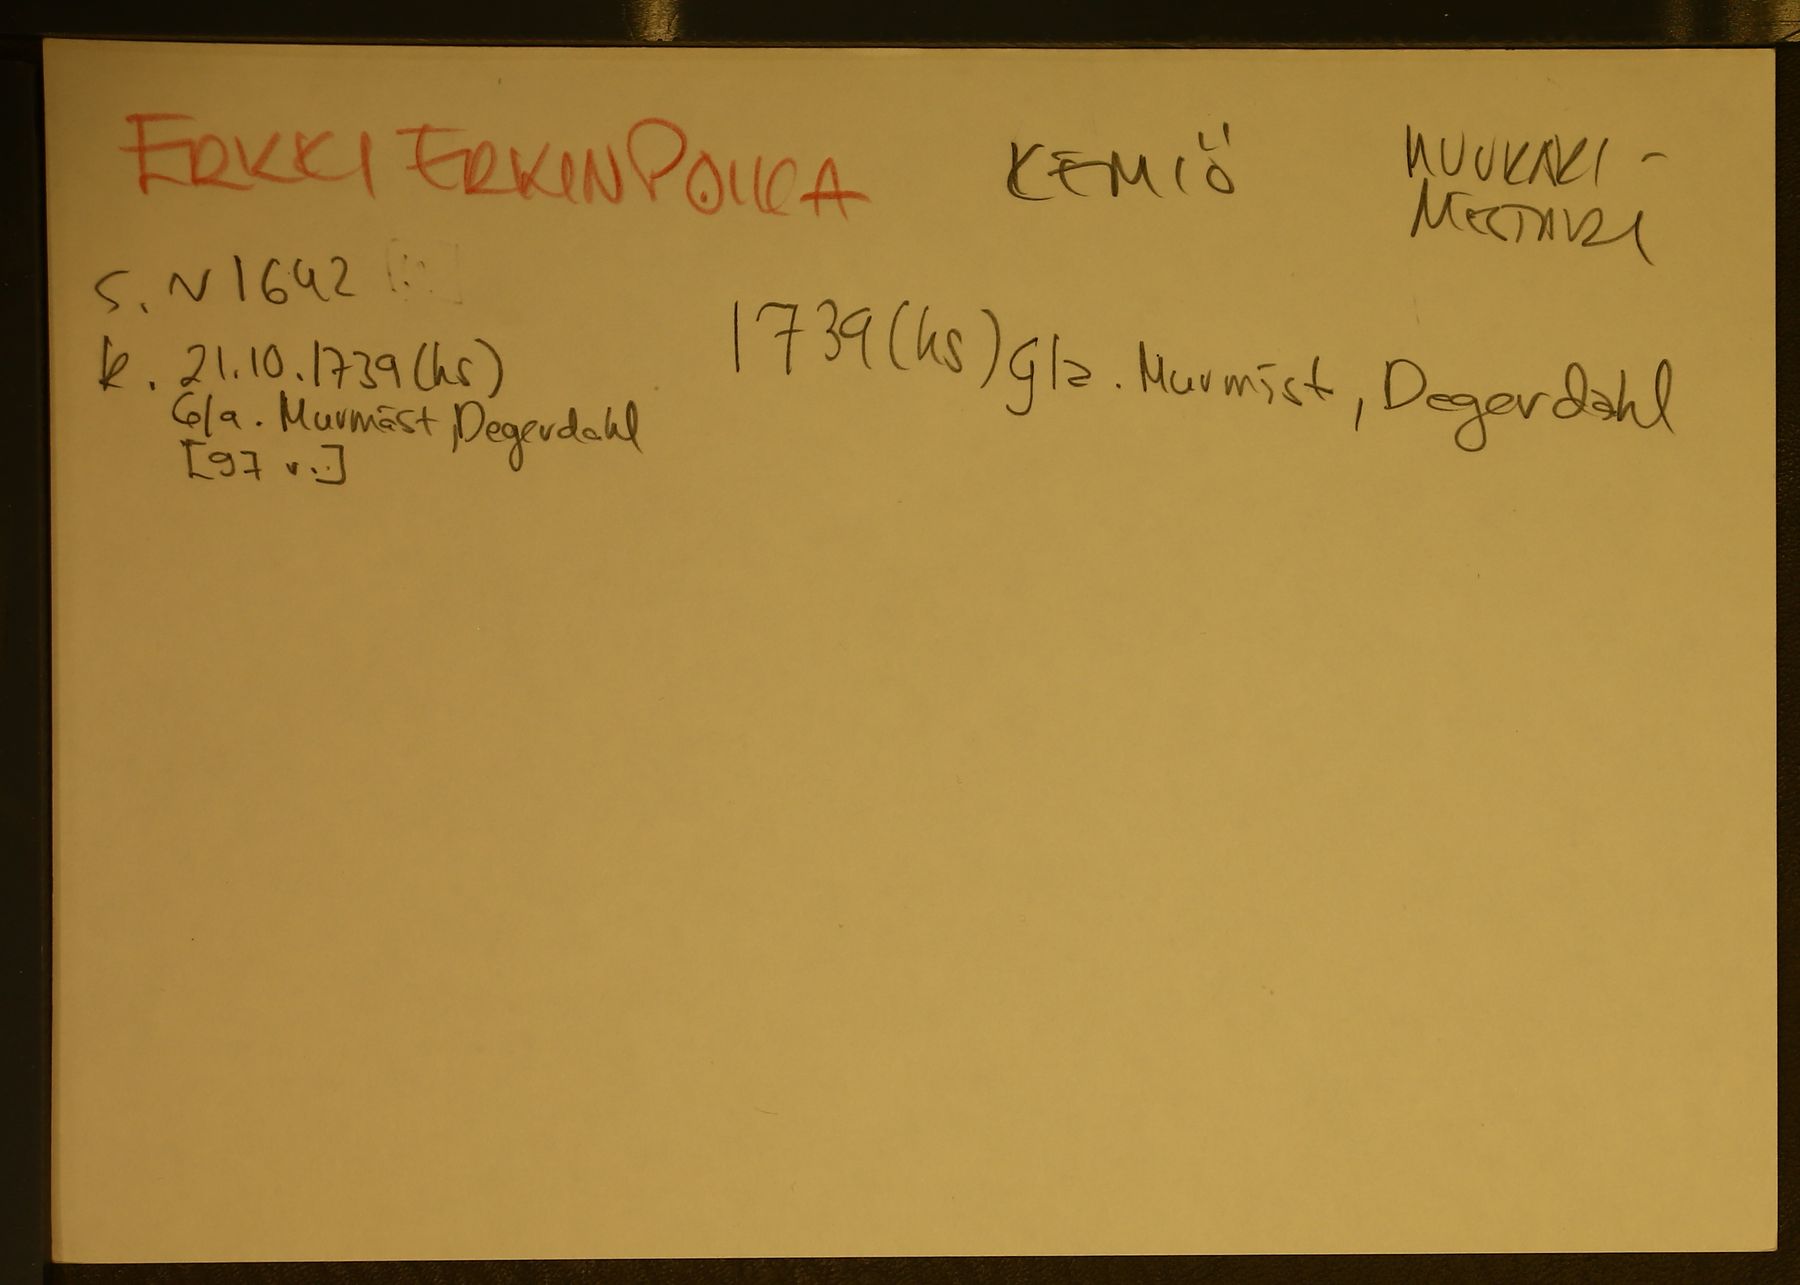 ERKKI ERKINPOIKA KEMIÖ MUURARI-
MESTARI
S. N 1642
k. 21.10.1739 (hs)
G/a. Murmäst, Degerdahl
[97 v.]
1739 (hs) G/a. Murmäst, Degerdahl